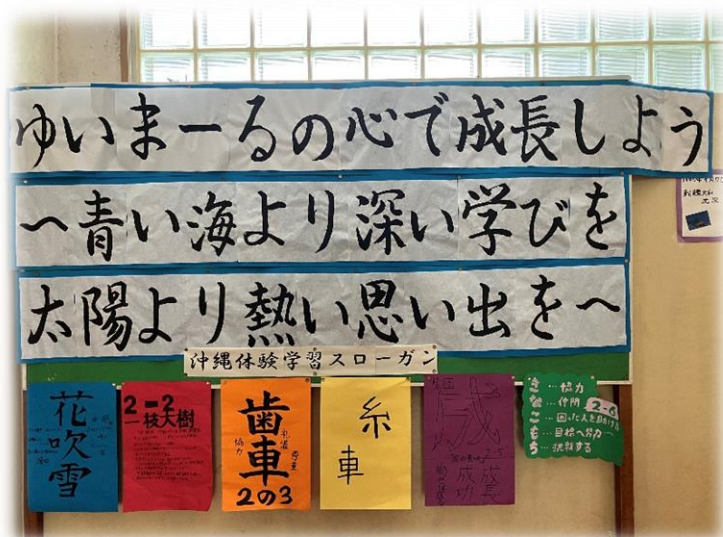 ゆいまーるの心で成長しよう
～青い海より深い学びを
太陽より熱い思い出を～
沖縄体験学習スローガン
花吹雪
2-2
一枝大樹
歯車
協力
礼儀
尊重
2の3
糸
車
成
成功
成長
2-6
き…協力
な…仲間
こ…困った人を助ける
も…目標へ努力
ち…挑戦する